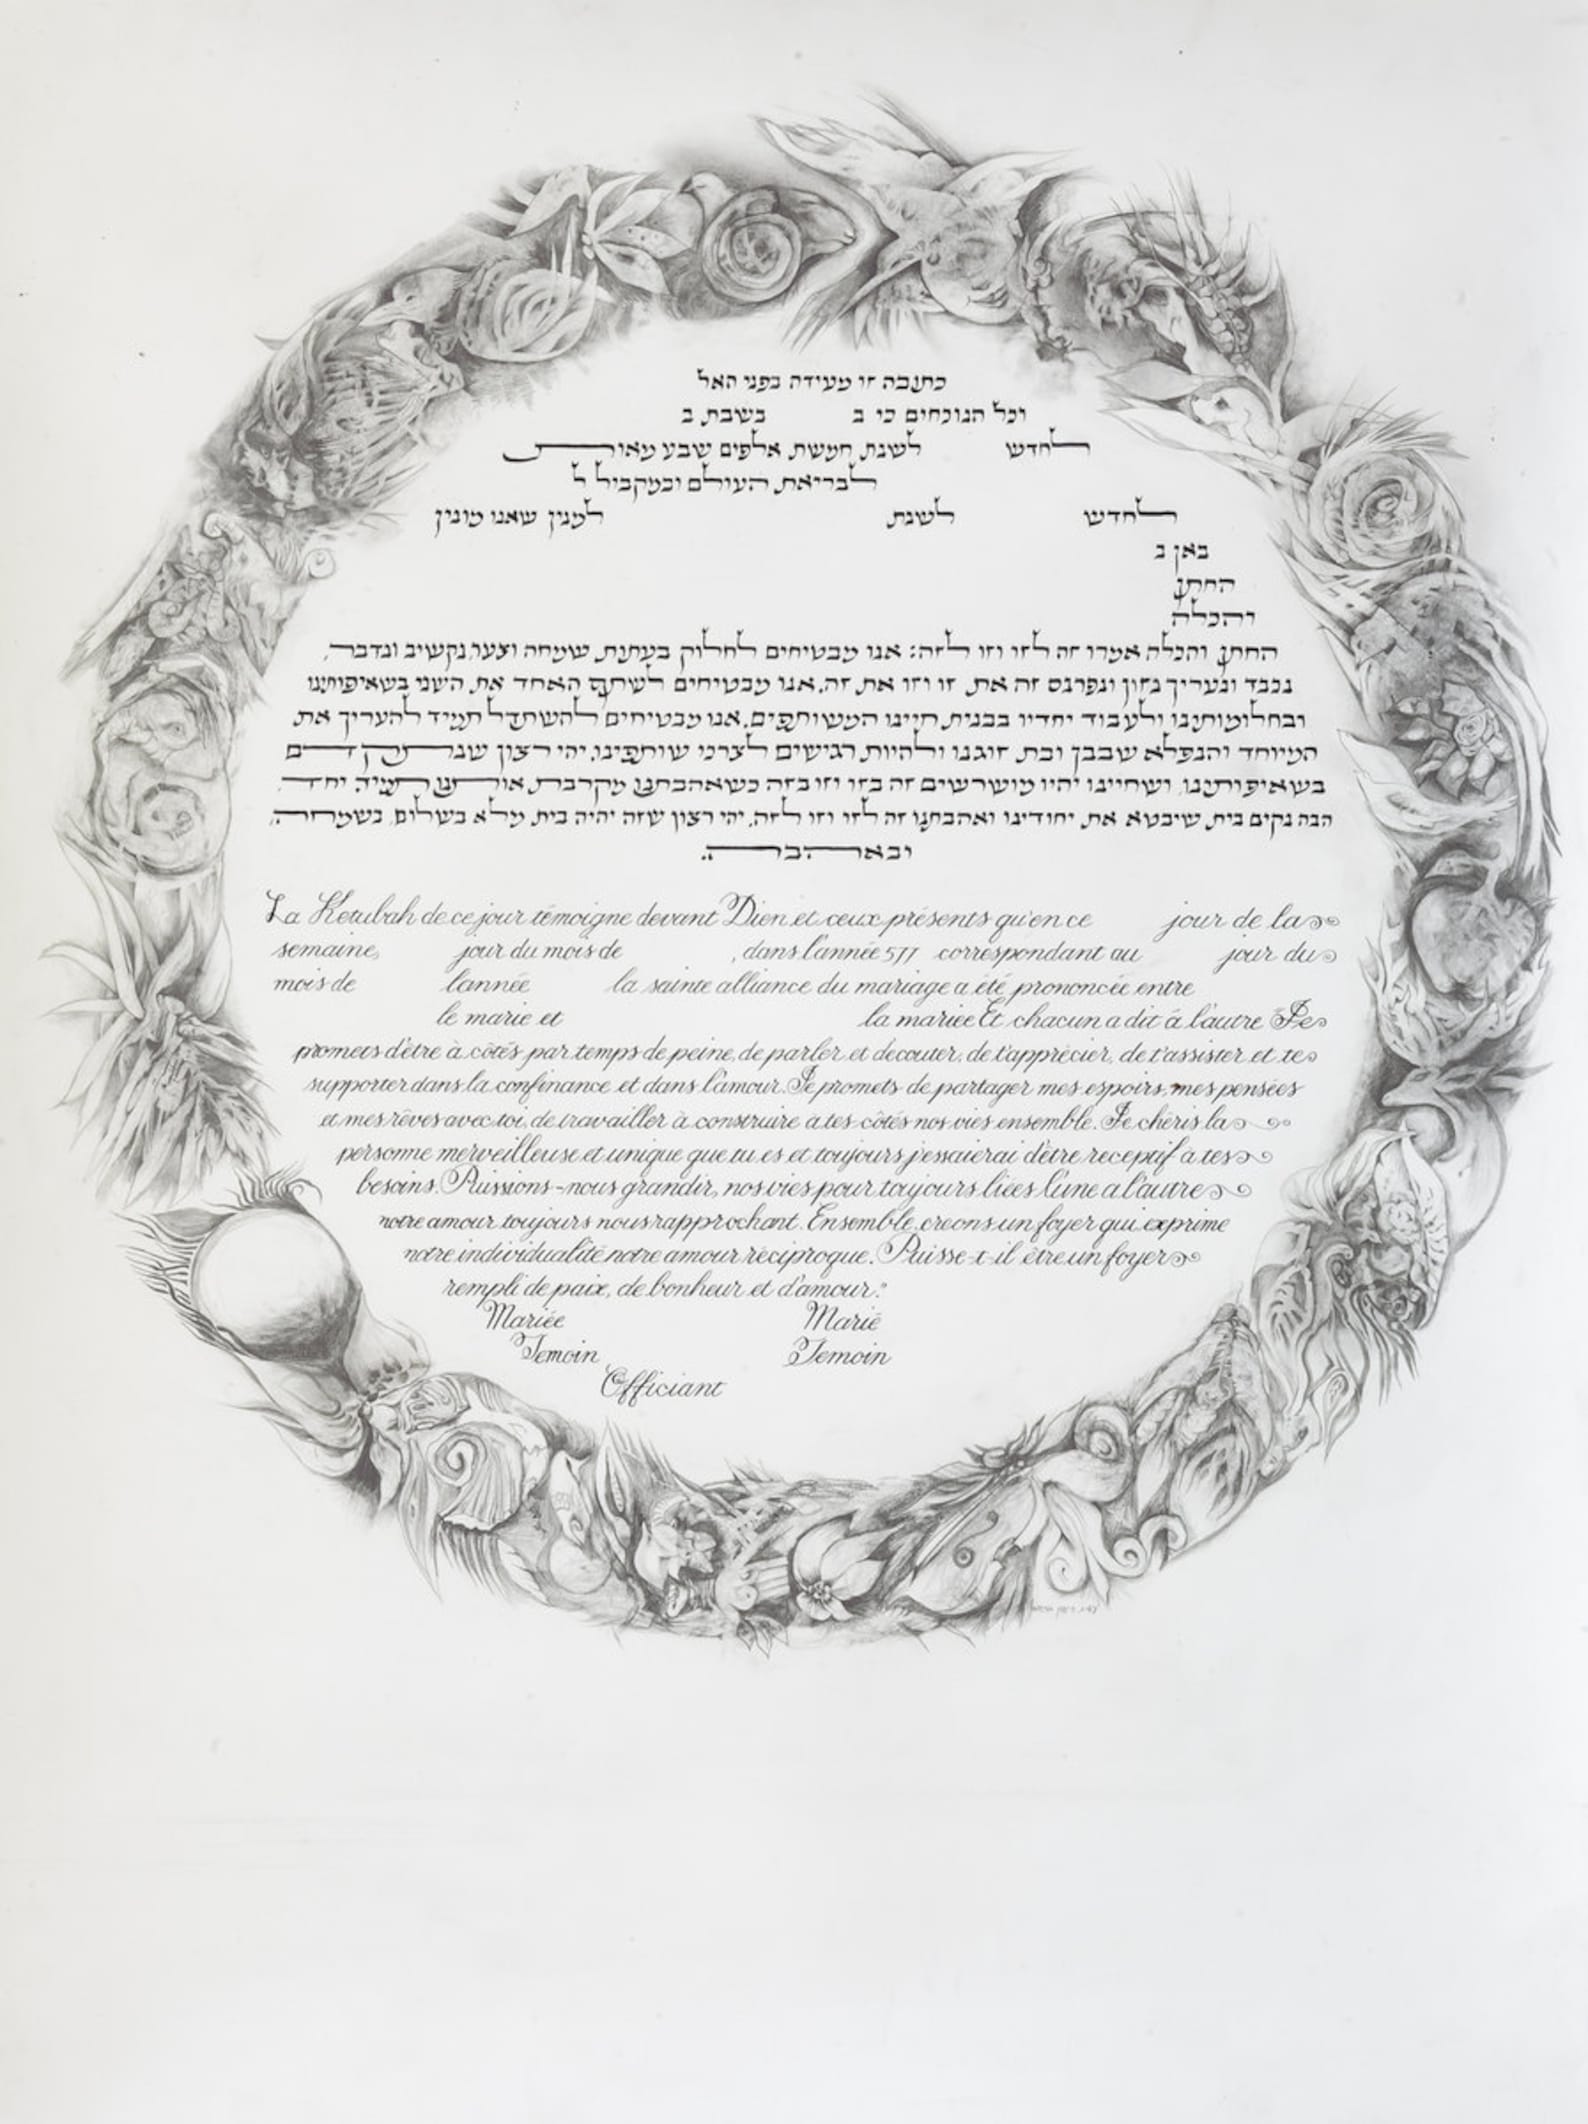 כתובה זו מעידה בפני האל
וכל הנוכחים כי ב בשבת ב
לחדש לשנת חמשת אלפים שבע מאות
לבריאת העולם ובמקביל ל
לחדש לשנת למנין שאנו מונין
כאן ב
החתן
והכלה
החתן והכלה אמרו זה לזו וזו לזה: אנו מבטיחים לחלוק בעתות שמחה וצער, נקשיב ונדבר,
נכבד ונעריך נזון ונפרנס זה את זו וזו את זה. אנו מבטיחים לשתף האחד את השני בשאיפותינו
ובחלומותינו ולעבוד יחדיו בבנית חיינו המשותפים. אנו מבטיחים להשתדל תמיד להעריך את
המיוחד והנפלא שבבן ובת זוגנו ולהיות רגישים לצרכי שותפינו. יהי רצון שנתקדם
בשאיפותינו, ושחיינו יהיו מושרשים זה בזו וזו בזה כשאהבתנו מקרבת אותנו תמיד יחד.
הבה נקים בית שיבטא את יחודינו ואהבתנו זה לזו וזו לזה. יהי רצון שזה יהיה בית מלא בשלום, בשמחה,
ובאהבה.
La Ketubah de ce jour témoigne devant Dien et ceux présents qu'en ce jour de la
semaine, jour du mois de , dans l'année 577 correspondant au jour du
mois de lannée la sainte alliance du mariage a été prononcée entre
le marie et la mariée Et chacun a dit á l'autre Je
promets d'être à côtés par temps de peine, de parler et decouter, de t'apprécier, de t'assister et te
supporter dans la confinance et dans l'amour. Je promets de partager mes espoirs, mes pensées
et mes rêves avec toi, de travailler à construire a tes côtés nos vies ensemble. Je chéris la
personne merveilleuse et unique que tu es et toujours j'essaierai d'être receptif à tes
besoins. Puissions-nous grandir, nos vies pour toujours liées l'une a l'autre
notre amour toujours nous rapprochant. Ensemble, creons un foyer qui exprime
notre individualité notre amour réciproque. Puisse-t-il être un foyer
rempli de paix, de bonheur et d'amour.
Mariée Marié
Temoin Temoin
Officiant